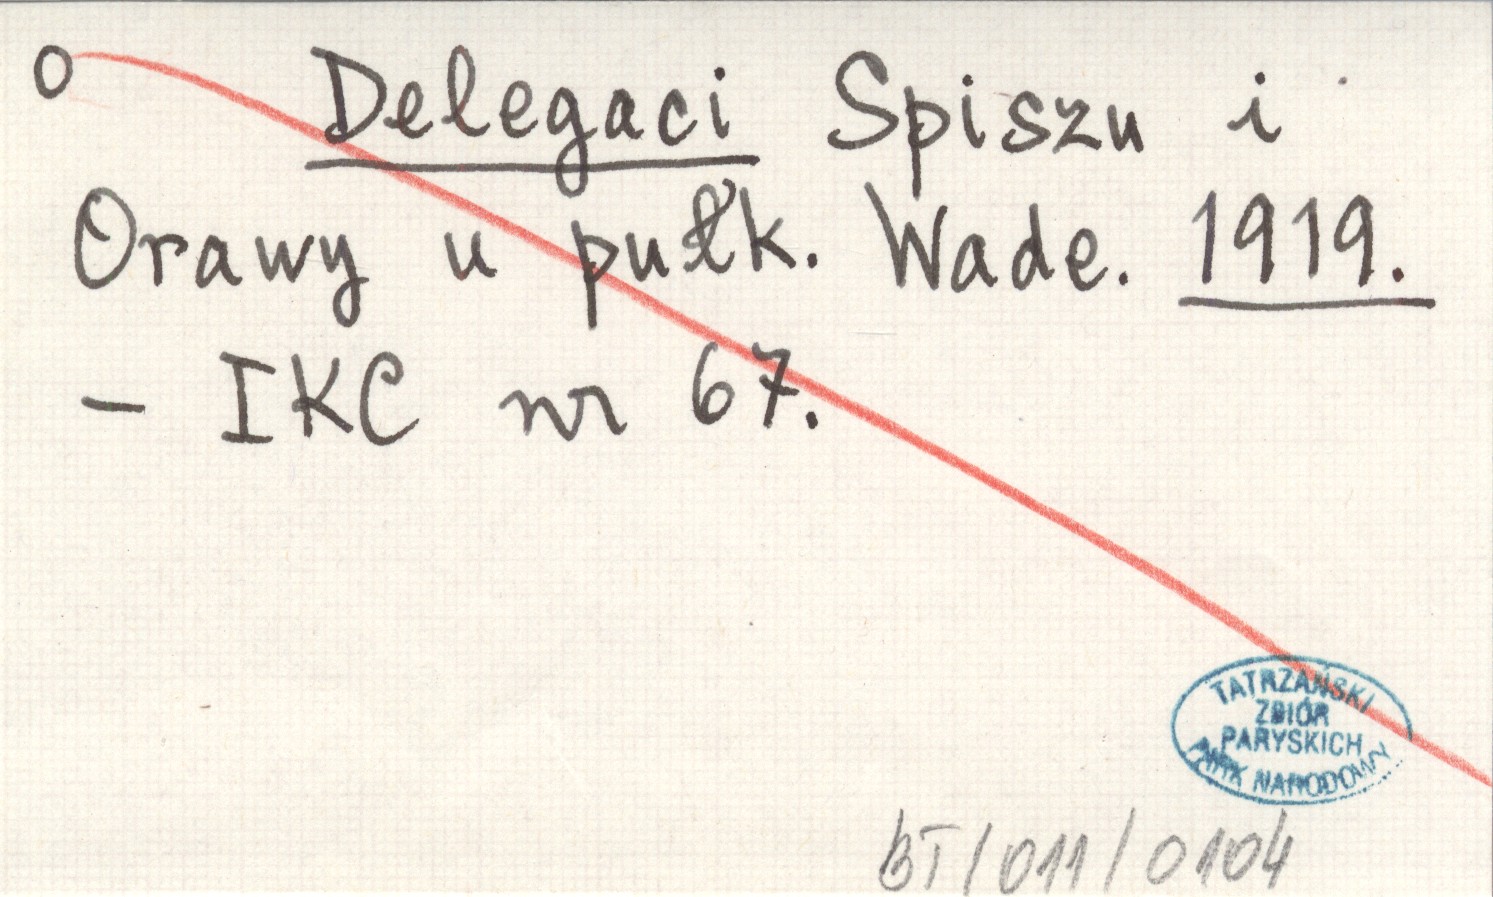 O
Delegaci Spiszu i
Orawy u pułk. Wade. 1919.
– IKC nr 67.
TATRZAŃSKI
ZBIÓR
PARYSKICH
PARK NARODOWY
BT/011/0104